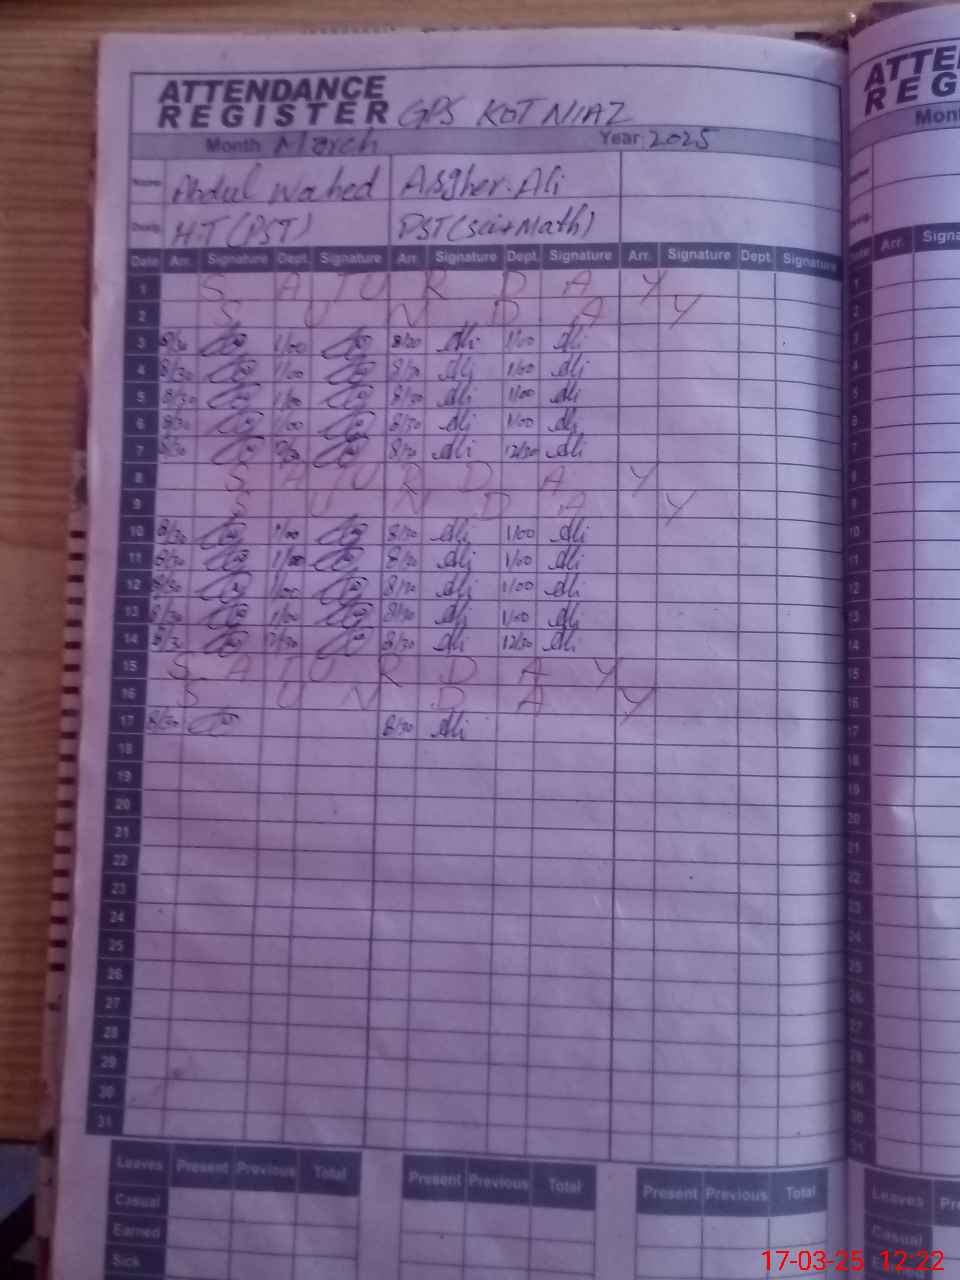 ATTENDANCE
REGISTER GPS KOT NIAZ
Month March Year 2025
Name Abdul Wahed Asgher Ali
Desig. H.T (PST) PST (sci+Math)
Date Arr. Signature Dept. Signature Arr. Signature Dept. Signature Arr. Signature Dept. Signature
1 SATURDAY
2 SUNDAY
3 8/30 1/00 8/30 Ali 1/00 Ali
4 8/30 1/00 8/30 Ali 1/00 Ali
5 8/30 1/00 8/30 Ali 1/00 Ali
6 8/30 1/00 8/30 Ali 1/00 Ali
7 8/30 8/30 Ali 12/30 Ali
8 SATURDAY
9 SUNDAY
10 8/30 1/00 8/30 Ali 1/00 Ali
11 8/30 1/00 8/30 Ali 1/00 Ali
12 8/30 1/00 8/30 Ali 1/00 Ali
13 8/30 1/00 8/30 Ali 1/00 Ali
14 8/30 12/30 8/30 Ali 12/30 Ali
15 SATURDAY
16 SUNDAY
17 8/30 8/30 Ali
18
19
20
21
22
23
24
25
26
27
28
29
30
31
Leaves Present Previous Total Present Previous Total Present Previous Total
Casual
Earned
Sick
ATTE
REG
Mon
Arr. Signa
Leaves Pre
Casual
17-03-25 12:22